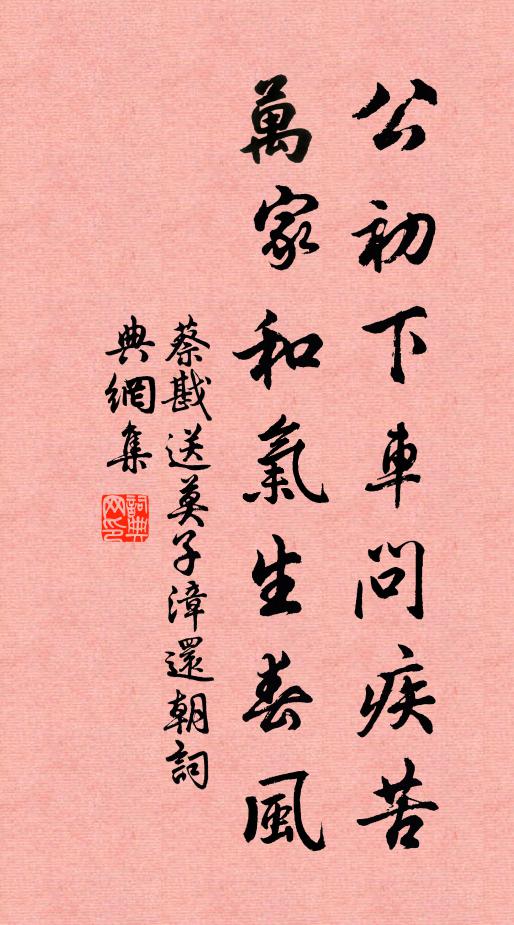 公初下車問疾苦
萬家和氣生春風
蔡戡送莫子漳還朝詞
典網集
詞典網印